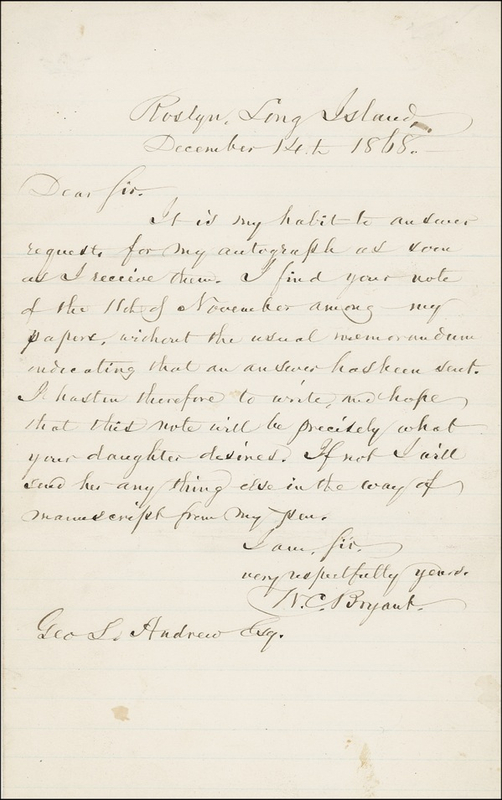 Roslyn, Long Island,
December 14th 1868.
Dear Sir.
It is my habit to answer
requests for my autograph as soon
as I receive them. I find your note
of the 11th of November among my
papers, without the usual memorandum
indicating that an answer has been sent.
I hasten therefore to write, and hope
that this note will be precisely what
your daughter desires. If not I will
send her any thing else in the way of
manuscript from my pen.
I am, Sir.
very respectfully yours.
W. C. Bryant.
Geo L. Andrew Esq.